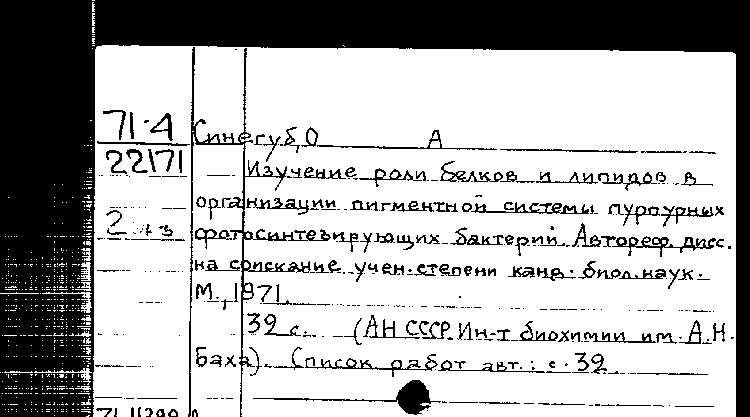 71-4 Синегуб, О А
22171 Изучение роли белков и липидов в
организации пигментной системы пурпурных
2 фотосинтезирующих бактерий. Автореф. дисс.
на соискание учен. степени канд. биол. наук.
М., 1971.
32 с. (АН СССР. Ин-т биохимии им. А.Н.
Баха). Список работ авт.: с. 32.